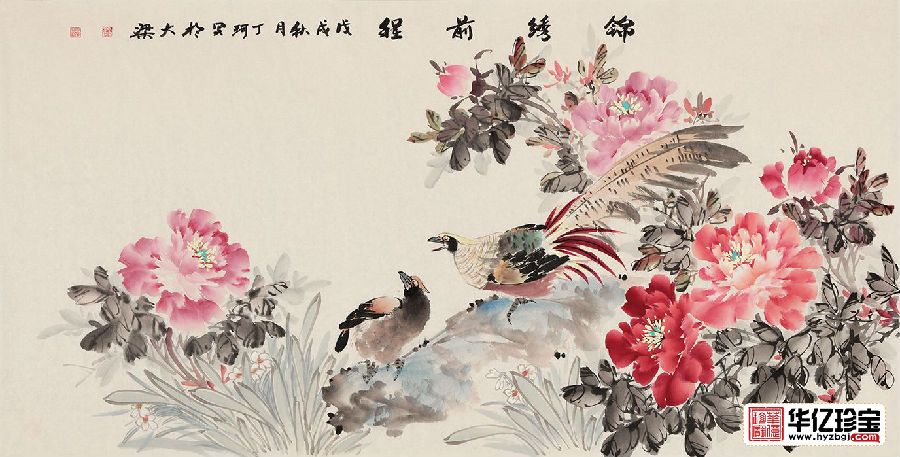 锦绣前程
戊戌秋月丁珂写於大梁
华亿珍宝
www.hyzbgj.com